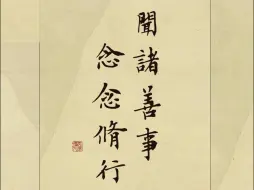 聞諸善事
念念脩行